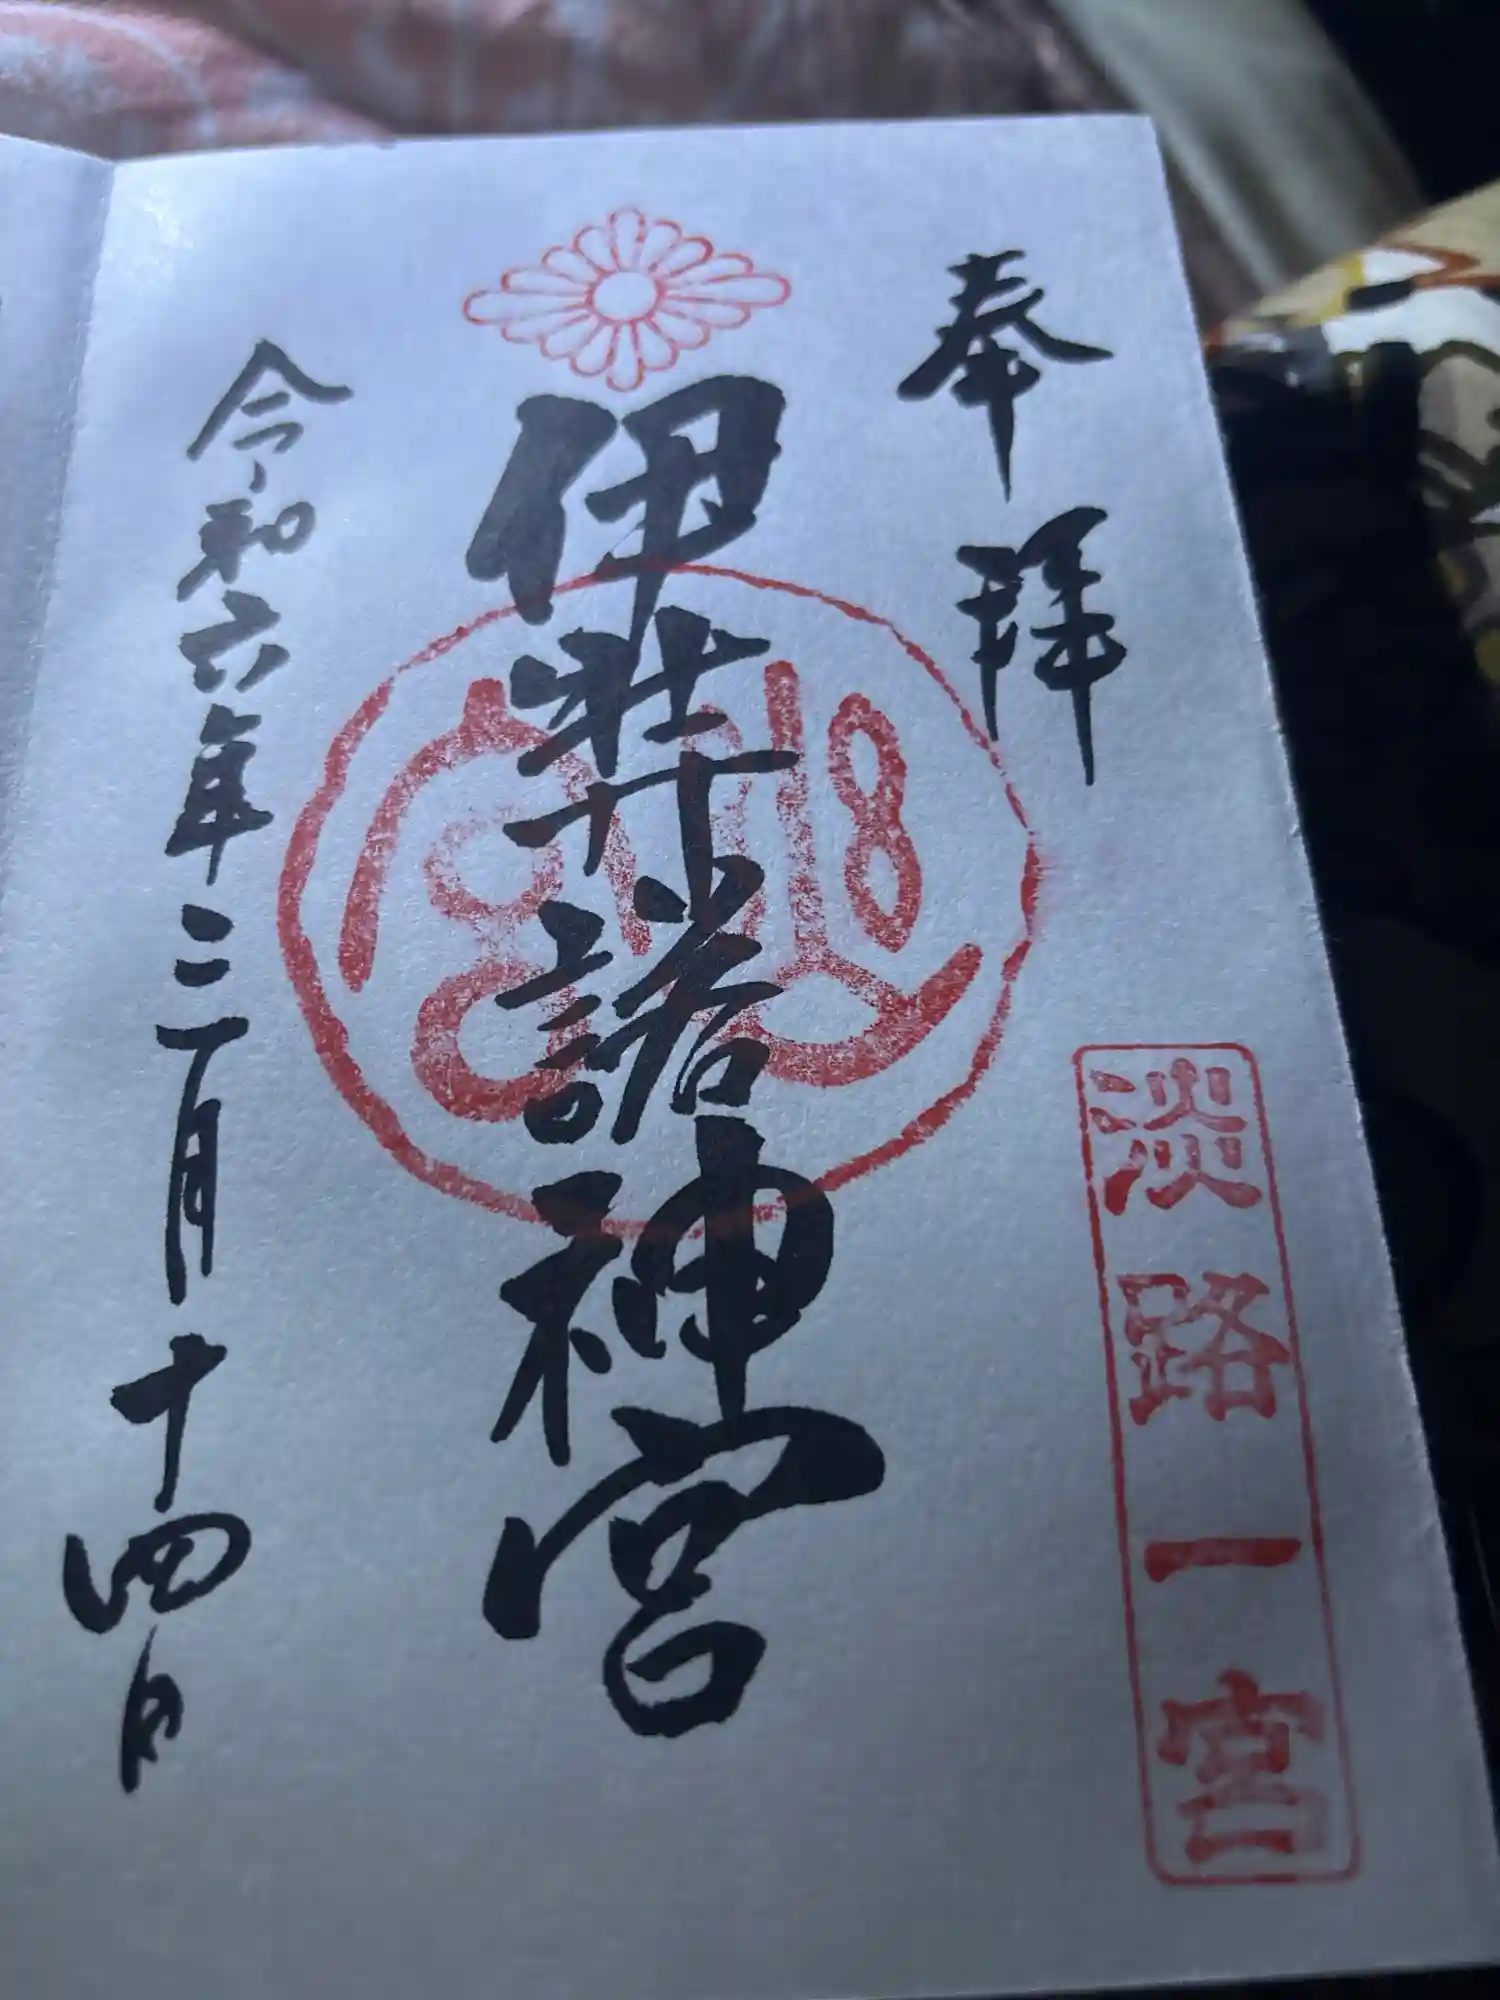 奉拝
淡路一宮
伊弉諾神宮
幽宮
令和六年三月十四日